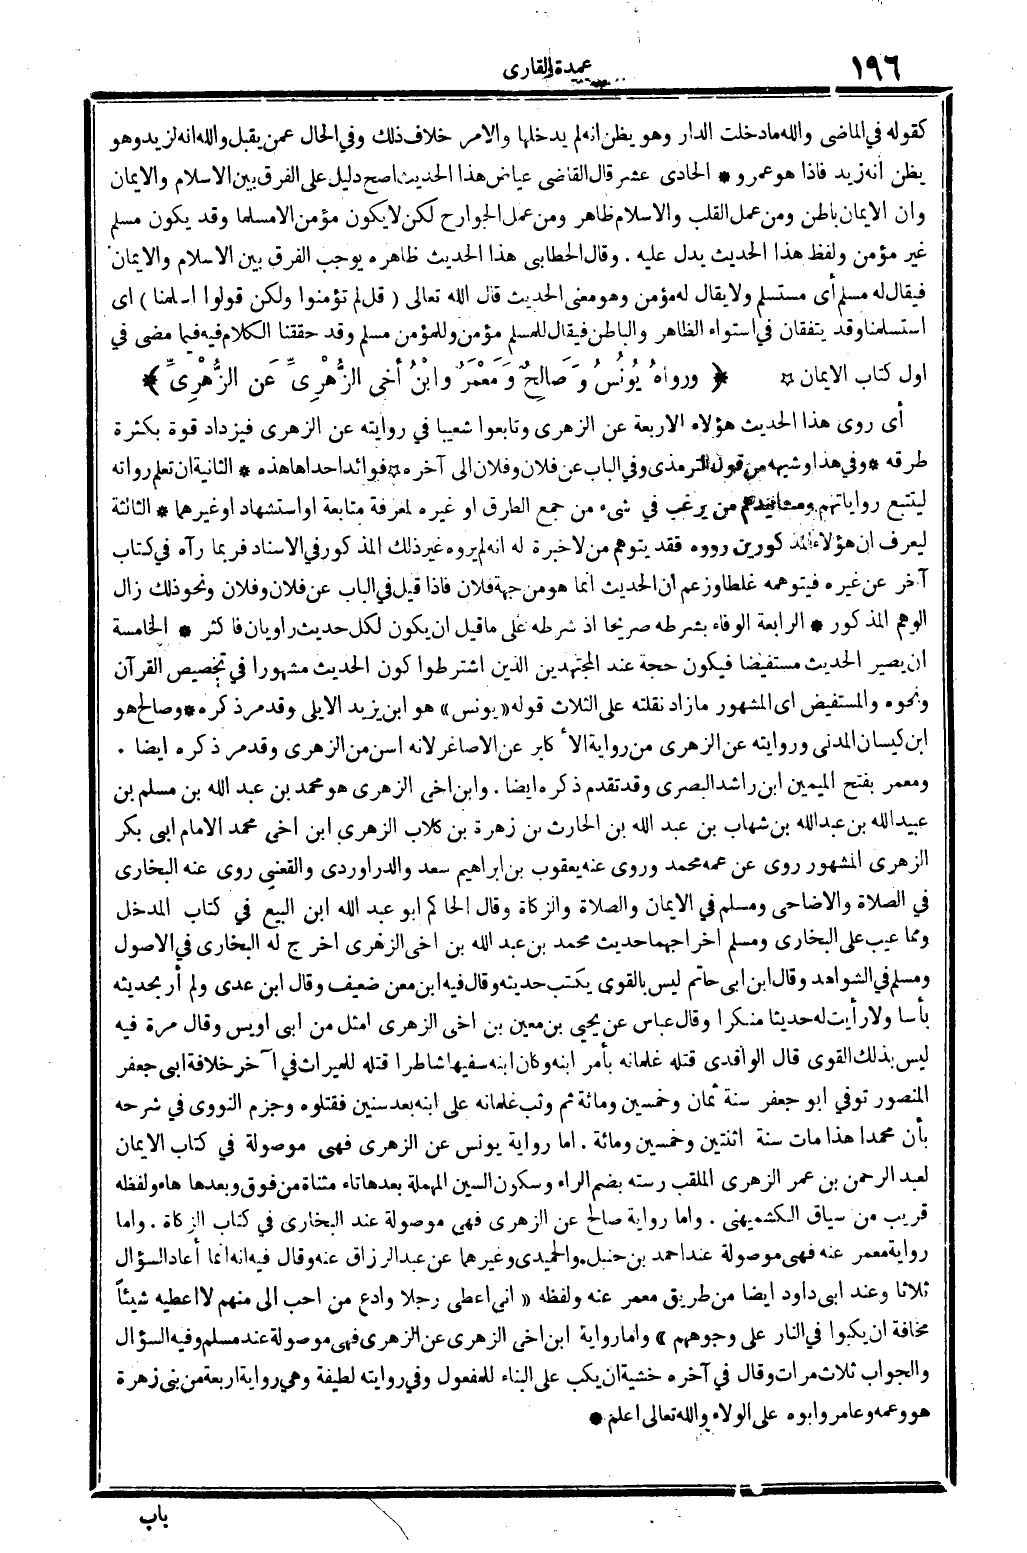 ١٩٦
عمدة القارى
كقوله فى الماضى والله مادخلت الدار وهو يظن انه لم يدخلها والامر خلاف ذلك وفى الحال عمن يقبل والله انه لزيد وهو
يظن انه زيد فاذا هو عمرو * الحادى عشر قال القاضى عياض هذا الحديث اصح دليل على الفرق بين الاسلام والايمان
وان الايمان باطن ومن عمل القلب والاسلام ظاهر ومن عمل الجوارح لكن لا يكون مؤمن الامسلما وقد يكون مسلم
غير مؤمن ولفظ هذا الحديث يدل عليه . وقال الخطابى هذا الحديث ظاهره يوجب الفرق بين الاسلام والايمان
فيقال له مسلم أى مستسلم ولا يقال له مؤمن وهو معنى الحديث قال الله تعالى ( قل لم تؤمنوا ولكن قولوا اسلمنا ) اى
استسلمنا وقد يتفقان فى استواء الظاهر والباطن فيقال للمسلم مؤمن وللمؤمن مسلم وقد حققنا الكلام فيه فيما مضى فى
اول كتاب الايمان ☆ ﴿ ورواهُ يُونُسُ وَصَالِحٌ وَمَعْمَرٌ وابْنُ أخى الزُّهْرِىِّ عَن الزُّهْرِىِّ ﴾
أى روى هذا الحديث هؤلاء الاربعة عن الزهرى وتابعوا شعيبا فى روايته عن الزهرى فيزداد قوة بكثرة
طرقه * وفى هذا وشبهه من قول الترمذى وفى الباب عن فلان وفلان الى آخره ☆ فوائد احداها هذه * الثانية ان تعلم رواته
ليتتبع رواياتهم ومسانيدهم من يرغب فى شىء من جمع الطرق او غيره لمعرفة متابعة او استشهاد او غيرهما * الثالثة
ليعرف ان هؤلاء المذكورين رووه فقد يتوهم من لا خبرة له انه لم يروه غير ذلك المذكور فى الاسناد فربما رآه فى كتاب
آخر عن غيره فيتوهمه غلطا وزعم ان الحديث انما هو من جهة فلان فاذا قيل فى الباب عن فلان وفلان ونحو ذلك زال
الوهم المذكور * الرابعة الوفاء بشرطه صريحا اذ شرطه على ماقيل ان يكون لكل حديث راويان فاكثر * الخامسة
ان يصير الحديث مستفيضا فيكون حجة عند المجتهدين الذين اشترطوا كون الحديث مشهورا فى تخصيص القرآن
ونحوه والمستفيض اى المشهور مازاد نقلته على الثلاث قوله « يونس » هو ابن يزيد الايلى وقد مر ذكره * وصالح هو
ابن كيسان المدنى وروايته عن الزهرى من رواية الأكابر عن الاصاغر لانه اسن من الزهرى وقد مر ذكره ايضا .
ومعمر بفتح الميمين ابن راشد البصرى وقد تقدم ذكره ايضا . وابن اخى الزهرى هو محمد بن عبد الله بن مسلم بن
عبيد الله بن عبد الله بن شهاب بن عبد الله بن الحارث بن زهرة بن كلاب الزهرى ابن اخى محمد الامام ابى بكر
الزهرى المشهور روى عن عمه محمد وروى عنه يعقوب بن ابراهيم سعد والدراوردى والقعنبى روى عنه البخارى
فى الصلاة والاضاحى ومسلم فى الايمان والصلاة والزكاة وقال الحاكم ابو عبد الله ابن البيع فى كتاب المدخل
ومما عيب على البخارى ومسلم اخراجهما حديث محمد بن عبد الله بن اخى الزهرى اخرج له البخارى فى الاصول
ومسلم فى الشواهد وقال ابن ابى حاتم ليس بالقوى يكتب حديثه وقال فيه ابن معن ضعيف وقال ابن عدى ولم أر بحديثه
بأسا ولا رأيت له حديثا منكرا وقال عباس عن يحيى بن معين بن اخى الزهرى امثل من ابى اويس وقال مرة فيه
ليس بذلك القوى قال الواقدى قتله غلمانه بأمر ابنه وكان ابنه سفيها شاطرا قتله للميراث فى آخر خلافة ابى جعفر
المنصور توفي ابو جعفر سنة ثمان وخمسين ومائة ثم وثب غلمانه على ابنه بعد سنين فقتلوه وجزم النووى فى شرحه
بأن محمدا هذا مات سنة اثنتين وخمسين ومائة . اما رواية يونس عن الزهرى فهى موصولة فى كتاب الايمان
لعبد الرحمن بن عمر الزهرى الملقب رسته بضم الراء وسكون السين المهملة بعدها تاء مثناة من فوق وبعدها هاء ولفظه
قريب من سياق الكشميهنى . واما رواية صالح عن الزهرى فهى موصولة عند البخارى فى كتاب الزكاة . واما
رواية معمر عنه فهى موصولة عند احمد بن حنبل . والحميدى وغيرهما عن عبد الرزاق عنه وقال فيه انه انما أعاد السؤال
ثلاثا وعند ابى داود ايضا من طريق معمر عنه ولفظه « انى اعطى رجلا وادع من احب الى منهم لا اعطيه شيئاً
مخافة ان يكبوا فى النار على وجوههم » واما رواية ابن اخى الزهرى عن الزهرى فهى موصولة عند مسلم وفيه السؤال
والجواب ثلاث مرات وقال فى آخره خشية ان يكب على البناء للمفعول وفى روايته لطيفة وهى رواية اربعة من بنى زهرة
هو وعمه وعامر وابوه على الولاء والله تعالى اعلم *
باب